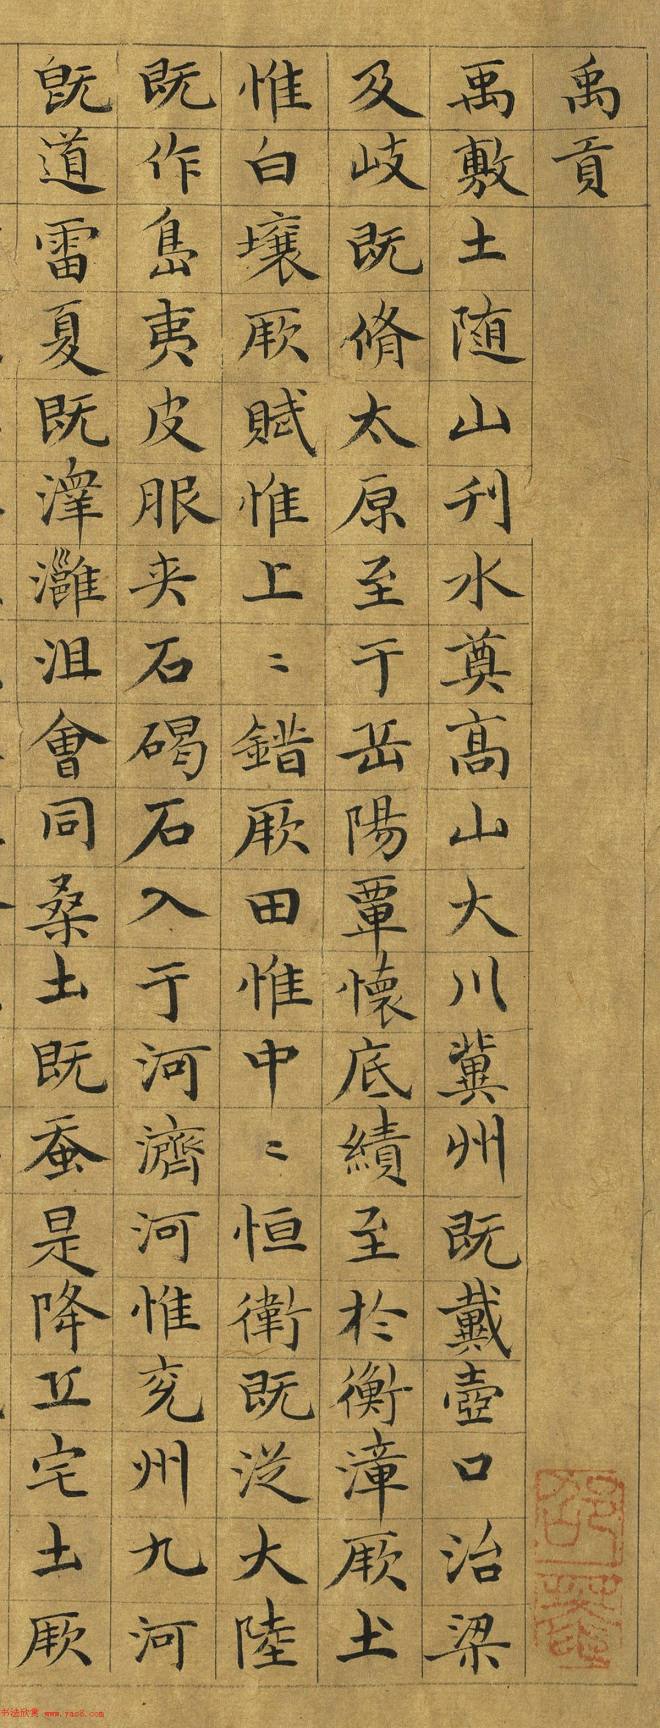 禹貢
禹敷土随山刋水奠髙山大川冀州既戴壺口治梁
及岐既脩太原至于岳陽覃懷底績至於衡漳厥土
惟白壤厥賦惟上〻錯厥田惟中〻恒衛既従大陸
既作島夷皮服夹石碣石入于河濟河惟兖州九河
既道雷夏既澤灉沮會同桑土既蚕是降丘宅土厥
书法欣赏 www.yac8.com